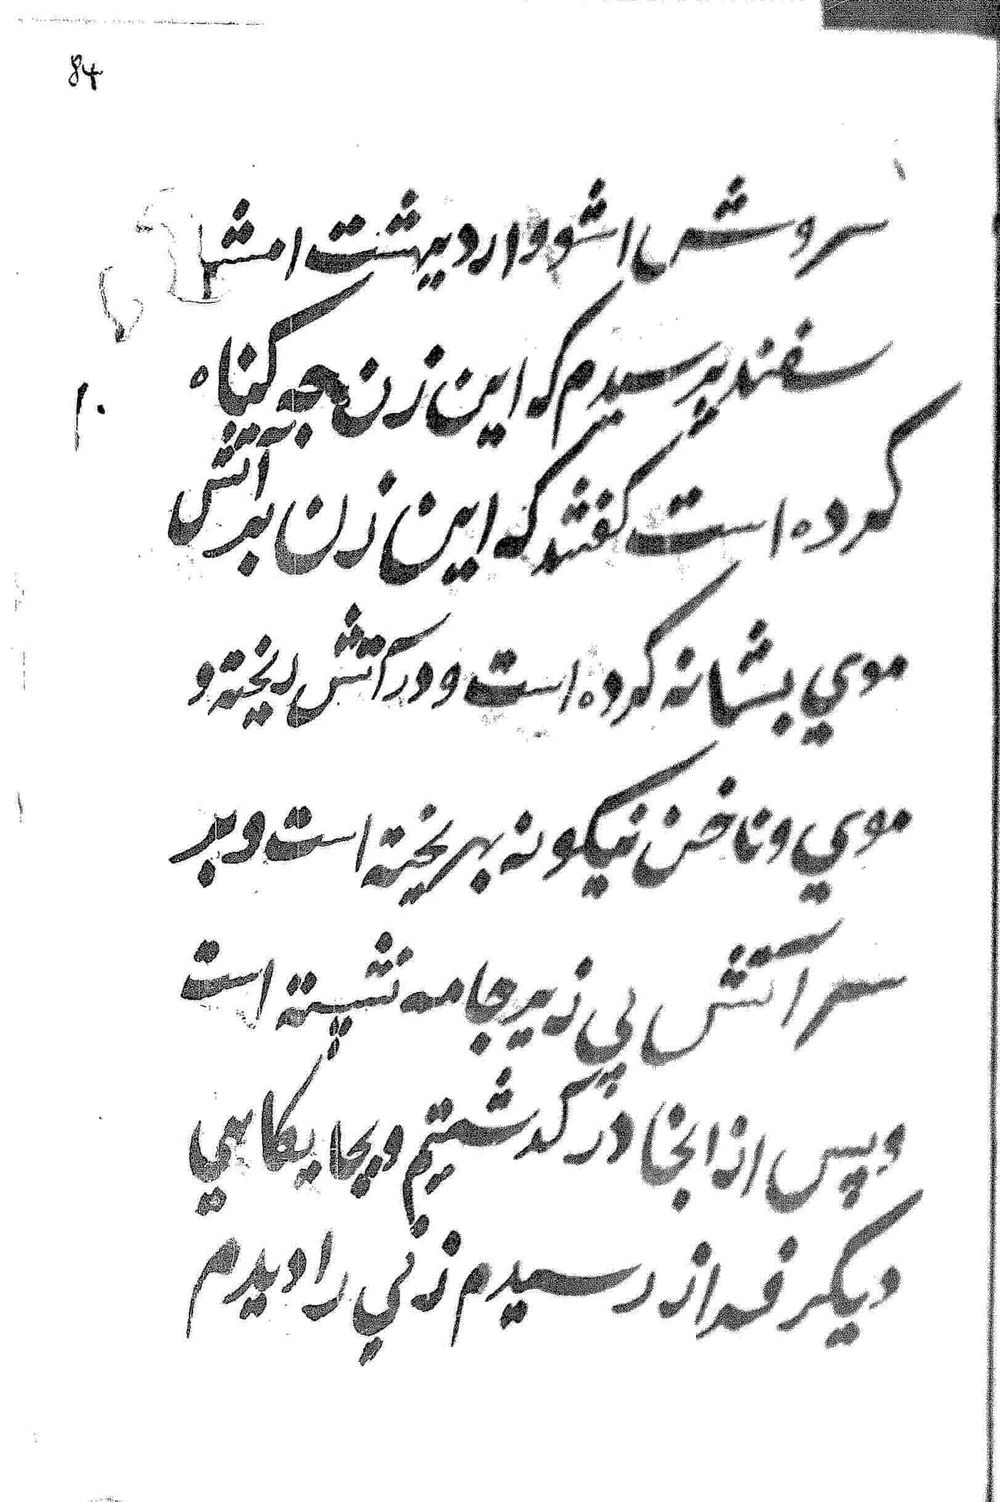 84
سروش اشو و اردیبهشت امشا
سفند پرسیدم که این زن چه کناه
کرده است کفتند که این زن بد آتش
موي بشانه کرده است و در آتش ریخته و
موي و ناخن نیکو نه بهریخته است و بر
سر آتش پي زیر جامه نشسته است
و پس از انجا در کذشتیم و بجایکاهي
دیکر فراز رسیدم زني را دیدم